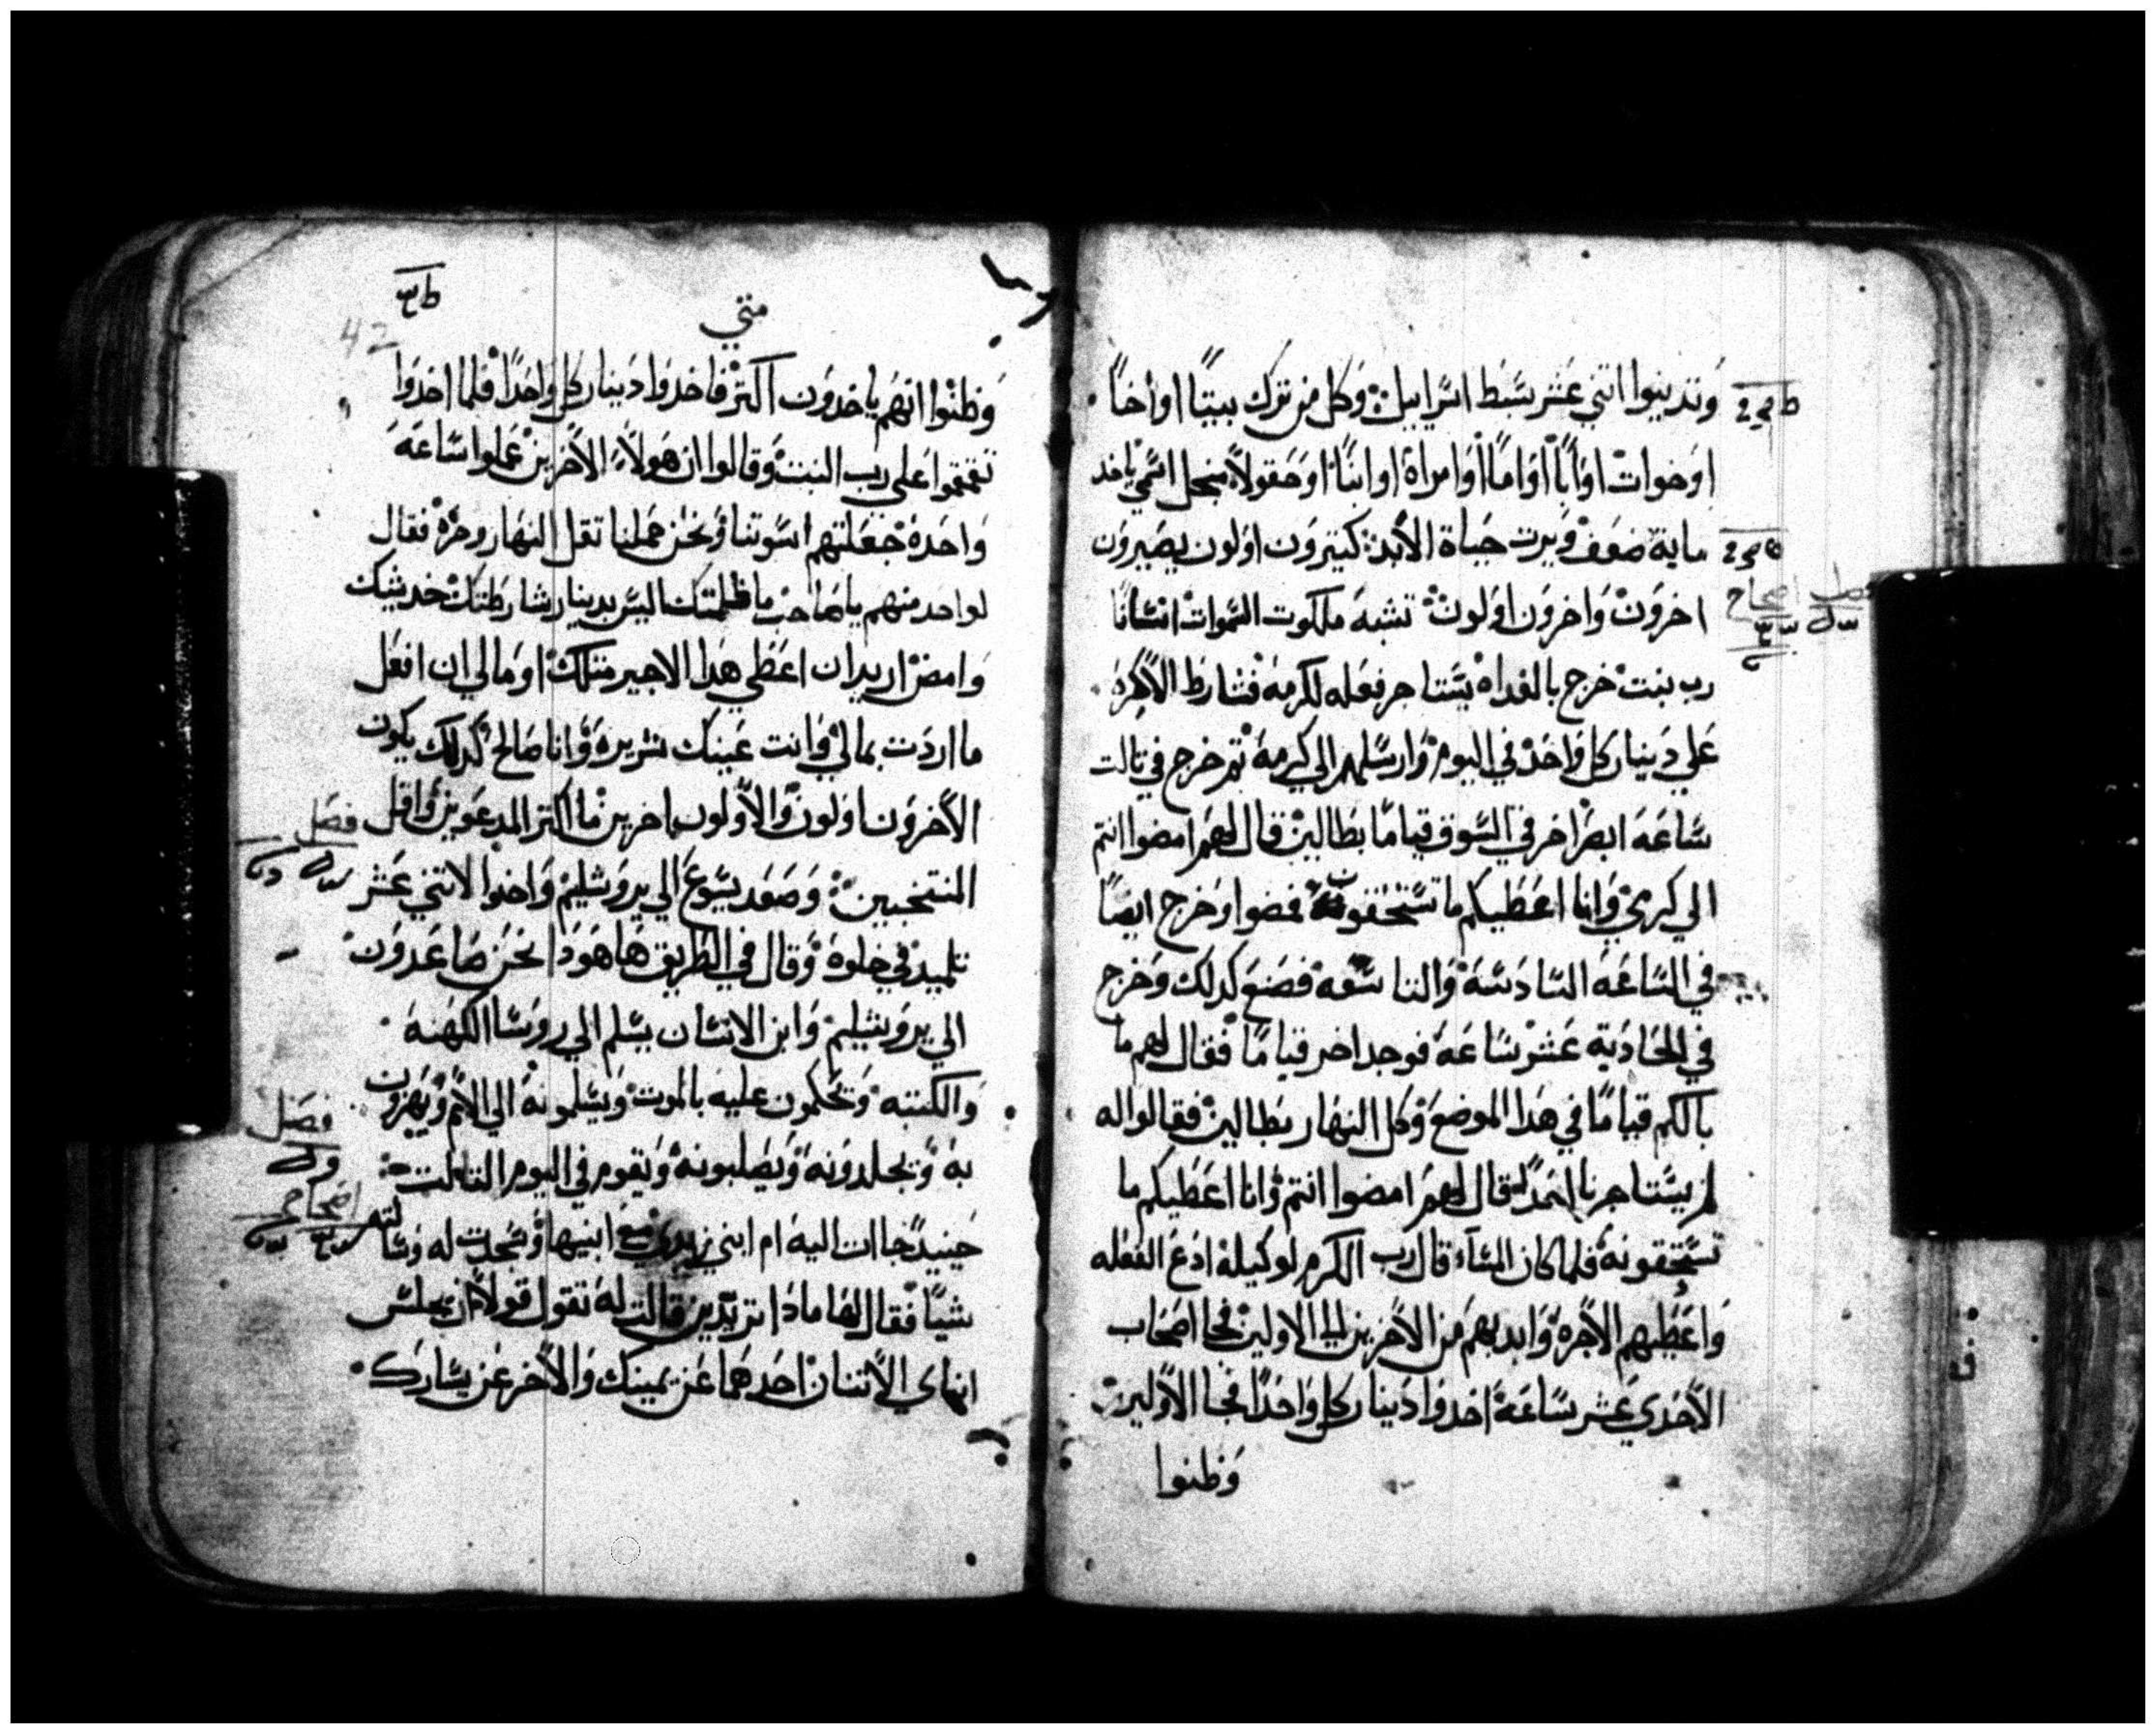 وتدينوا اتني عشر سبط اسراييل وكل من ترك بيتًا او اخًا
او خوات او ابًا او امًا او امراة او ابنًا او حقولًا من اجل اسمي ياخد
ماية ضعف ويرت حياة الابد كتيرون اولون يصيرون
اخرون واخرون اولون تشبه ملكوت السموات انسانًا
رب بيت خرج بالغداه يستاجر فعله لكرمه فشارط الاجره
علي دينار كل واحد في اليوم وارسلهم الي كرمه تم خرج في تالت
ساعه ابصر اخر في السوق قيامًا بطالين قال لهم امضوا انتم
الي كرمي وانا اعطيكم ما تستحقون فمضوا وخرج ايضًا
في الساعه السادسه والتاسعه فصنع كدلك وخرج
في الحاديه عشر ساعه فوجد اخر قيامًا فقال لهم ما
بالكم قيامًا في هدا الموضع وكل النهار بطالين فقالوا له
لم يستاجرنا احد قال لهم امضوا انتم وانا اعطيكم ما
تستحقونه فلما كان المساء قال رب الكرم لوكيله ادع الفعله
واعطيهم الاجره وابديهم من الاخرين الي الاولين فجا اصحاب
الاحدي عشر ساعه اخدوا دينار كل واحدًا فجا الاولين
وظنوا
متي
42
وظنوا انهم ياخدون اكتر فاخدوا دينار كل واحدًا فلما اخدوا
تقمقموا علي رب البيت وقالوا ان هولاء الاخرين عملوا ساعه
واحده جعلتهم اسوتنا ونحن حملنا تقل النهار وحره فقال
لواحد منهم يا صاحب ما ظلمتك اليس بدينار شارطتك خد شيك
وامض اريد ان اعطي هدا الاجير متلك او ما لي ان افعل
ما اردت بمالي وانت عينك شريره وانا صالح كدلك يكون
الاخرون اولون والاولون اخرين ما اكتر المدعوين واقل
فصل
المنتخبين وصعد يسوع الي يروشليم واخدوا الاتني عشر
تلميد في خلوه وقال في الطريق ها هودا نحن صاعدون
الي يروشليم وابن الانسان يسلم الي روسا الكهنه
والكتبه وتحكمون عليه بالموت ويسلمونه الي الامم ويهزون
به ويجلدونه ويصلبونه ويقوم في اليوم التالت
فصل
اصحاح
حينيد جاات اليه ام ابني زبدي مع ابنيها وسجدت له وسالته
شيًا فقال لها مادا تريدين قالت له تقول قولًا ان يجلس
ابناي الاتنان احدهما عن يمينك والاخر عن يسارك